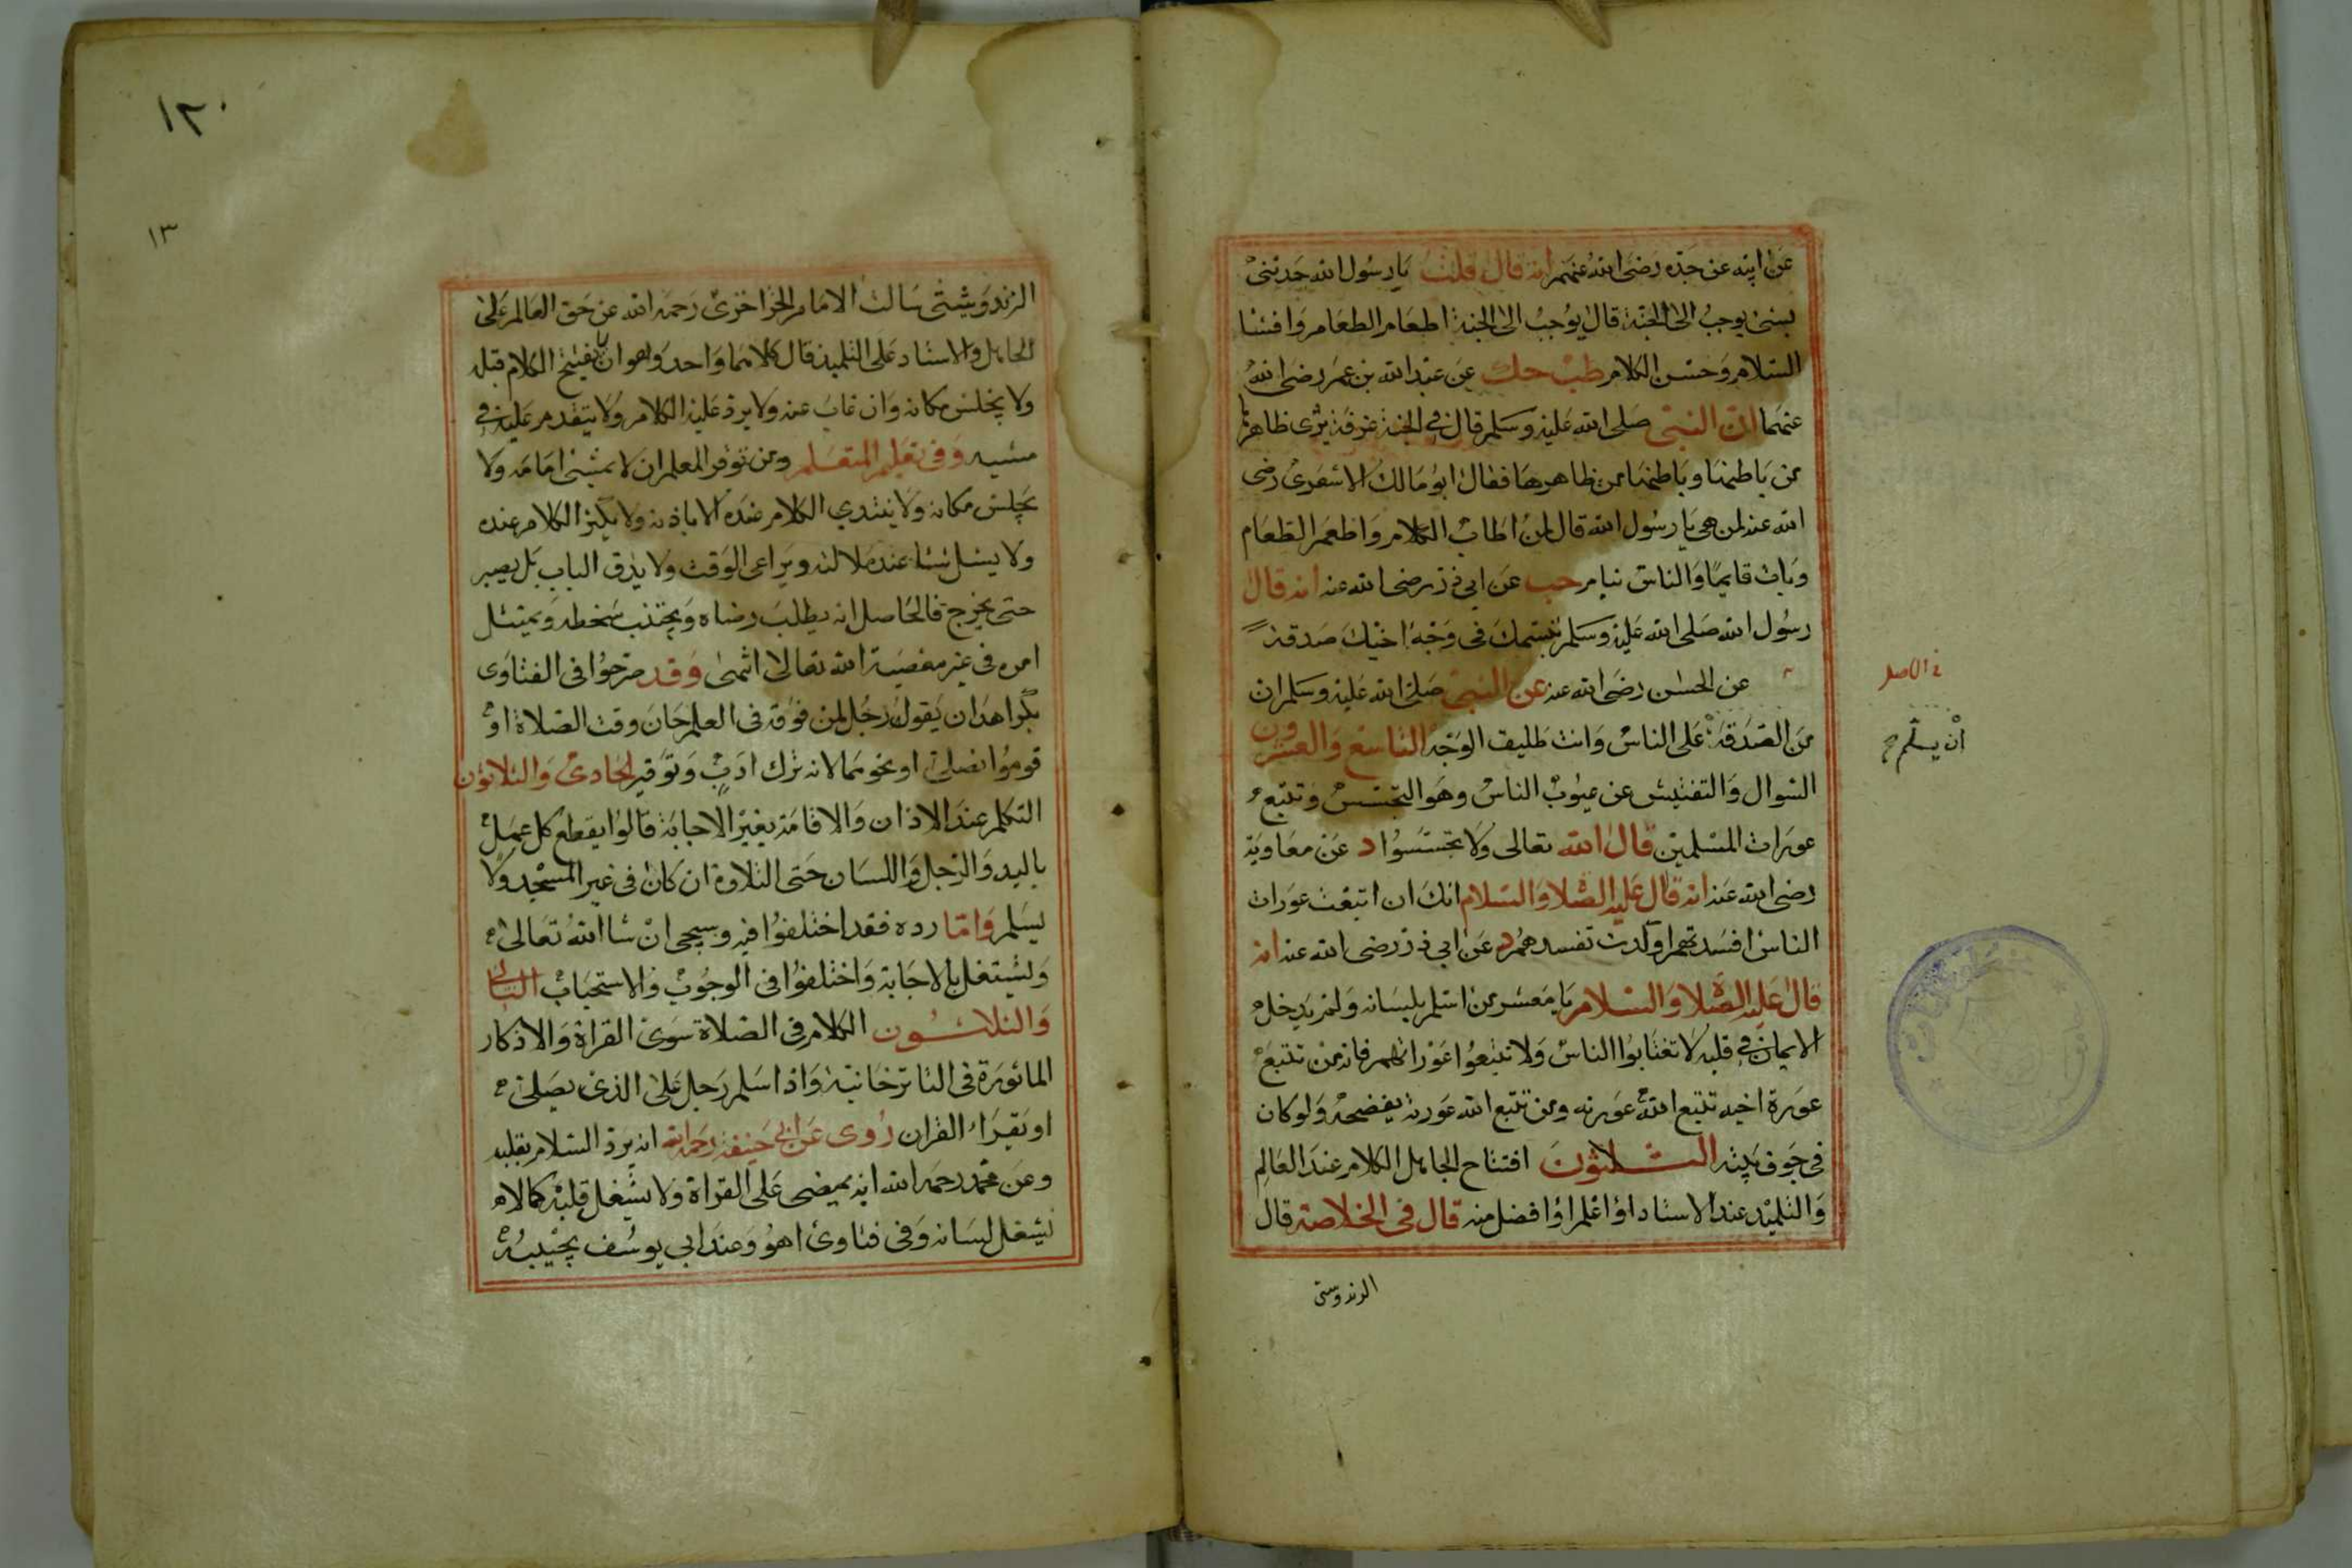 عن ابيه عن جده رضي الله عنهم انه قال قلت يا رسول الله حدثني
بشئ يوجب الى الجنة قال يوجب الى الجنة اطعام الطعام وافشا
السلام وحسن الكلام طب حك عن عبد الله بن عمر رضي الله
عنهما ان النبي صلى الله عليه وسلم قال في الجنة غرفة يرى ظاهرها
من باطنها وباطنها من ظاهرها فقال ابو مالك الاشعري رضي
الله عنه لمن هي يا رسول الله قال لمن اطاب الكلام واطعم الطعام
وبات قايما والناس نيام حب عن ابي ذر رضي الله عنه انه قال
رسول الله صلى الله عليه وسلم تبسمك في وجه اخيك صدقة
عن الحسن رضي الله عنه عن النبي صلى الله عليه وسلم ان
من الصدقة على الناس وانت طليق الوجه التاسع والعشرون
السوال والتفتيش عن عيوب الناس وهو التجسس وتتبع
عورات المسلمين قال الله تعالى ولا تجسسوا د عن معاوية
رضي الله عنه انه قال عليه الصلا والسلام انك ان اتبعت عورات
الناس افسدتهم او كدت تفسدهم د عن ابي ذر رضي الله عنه انه
قال عليه الصلاة والسلام يا معشر من اسلم بلسانه ولم يدخل
الايمان في قلبه لا تغتابوا الناس ولا تتبعوا عوراتهم فانه من تتبع
عورة اخيه تتبع الله عورته ومن تتبع الله عورته يفضحه ولو كان
في جوف بيته الثلاثون افتتاح الجاهل الكلام عند العالم
والتلميذ عند الاستاد او اعلم او افضل منه قال في الخلاصة قال
الزندوستى
في الاصل
أن يسلم
١٢٠
١٣
الزندويشتى سالت الامام الخزاخزى رحمه الله عن حق العالم على
الجاهل والاستاد على التلميذ قال كلاهما واحد وهو ان لا يفتتح الكلام قبله
ولا يجلس مكانه وان غاب عنه ولا يرد عليه الكلام ولا يتقدم عليه في
مشيه وفي تعليم المتعلم ومن توقر المعلم ان لا يمشي امامه ولا
يجلس مكانه ولا يبتدي الكلام عنده الا باذنه ولا يكثر الكلام عنده
ولا يسئل شئا عند ملالته ويراعى الوقت ولا يدق الباب بل يصبر
حتى يخرج فالحاصل انه يطلب رضاه ويجتنب سخطه ويمتثل
امره في غير معصية الله تعالى انتهى وقد صرحوا في الفتاوى
بكراهة ان يقول رجل لمن فوقه في العلم حان وقت الصلاة او
قوموا نصلى او نحوهما لانه ترك ادب وتوقير الحادى والثلاثون
التكلم عند الاذان والاقامة بغير الاجابة قالوا يقطع كل عمل
باليد والرجل واللسان حتى التلاوة ان كان في غير المسجد ولا
يسلم واما رده فقد اختلفوا فيه وسيجي ان شا الله تعالى
ولشتغل بالاجابة واختلفوا في الوجوب والاستحباب الثاني
والثلاثون الكلام في الصلاة سوى القراة والاذكار
الماثورة في التاترخانية واذا سلم رجل على الذي يصلى
او يقراء القران روى عن ابي حنيفة رحمه الله انه يرد السلام بقلبه
وعن محمد رحمه الله انه يمضي على القراة ولا يشغل قلبه كما لا
يشغل لسانه وفي فتاوى اهو وعند ابي يوسف يجيبه